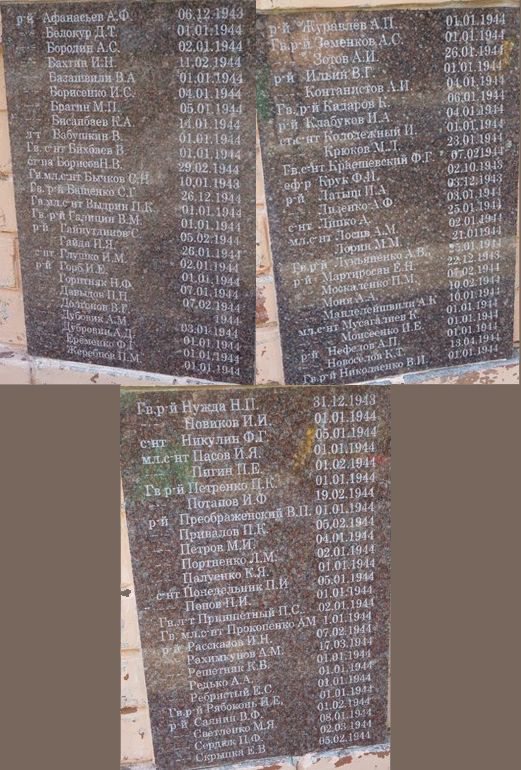 р-й Афанасьев А.Ф. 06.12.1943
Белокур Д.Т. 01.01.1944
Бородин А.С. 02.01.1944
Вахтин И.Н. 11.02.1944
Базашвили В.А 01.01.1944
Борисенко И.С. 04.01.1944
Брагин М.П. 05.01.1944
Бисанбаев К.А 14.01.1944
л-т Бабушкин В. 01.01.1944
Гв.с-нт Бихбаев В 01.01.1944
ст-на Борисов Н.В. 29.02.1944
Гв.мл.с-нт Бычков С.Н 10.01.1943
Гв.р-й Ващенко С.Г 26.12.1944
Гв.мл.с-нт Выдрин П.К. 01.01.1944
Гв.р-й Галицин В.М 01.01.1944
р-й Гайнутдинов С. 05.02.1944
Гайда И.Я. 26.01.1944
с-нт Глушко И.М. 02.01.1944
р-й Горб И.Е. 01.01.1944
Горятняк Н.Ф 07.01.1944
Давыдов П.Н 07.02.1944
Долгинов В.Г
Дубовик А.М 03.01.1944
Дубровин А.Д 01.01.1944
Еременко Ф.Г 01.01.1944
Жеребцов П.М 01.01.1944
р-й Журавлев А.П. 01.01.1944
Гв.р-й Земенков А.С. 01.01.1944
Зотов А.И. 26.01.1944
р-й Ильин В.Г. 01.01.1944
Контанистов А.И 04.01.1944
Гв.р-й Кадаров К. 06.01.1944
р-й Клабуков И.А 04.01.1944
ст.с-нт Колодежный И. 01.01.1944
Крюков М.Л. 23.01.1944
Гв.с-нт Краешевский Ф.Г. 07.02.1944
еф-р Крук Ф.Н 02.10.1943
р-й Латыш И.А 03.12.1943
Диденко А.Ф 03.01.1944
с-нт Липко Д. 25.01.1944
мл.с-нт Лосив А.М 02.01.1944
Лорин М.М. 21.011944
Гв.р-й Лукьяненко А.В. 25.01.1944
р-й Мартиросян Е.Н 22.12.1943
Москаленко П.М. 07.02.1944
Моня А.А. 10.02.1944
Манделейшвили А.К 10.01.1944
мл.с-нт Мусагалиев К 01.01.1944
Моисеенко И.Е. 01.01.1944
р-й Нефедов А.П. 01.01.1944
Новоселов К.Т. 13.04.1944
Гв.р-й Николаенко В.И. 01.01.1944
Гв.р-й Нужда Н.П. 31.12.1943
Новиков И.И 01.01.1944
с-нт Никулин Ф.Г 05.01.1944
мл.с-нт Пасов И.Я. 01.01.1944
Пягин П.Е. 01.02.1944
Гв.р-й Петренко П.К. 01.01.1944
Потапов И.Ф 19.02.1944
р-й Преображенский В.П. 01.01.1944
Привалов П.К 05.02.1944
Петров М.И. 04.01.1944
Портненко Л.М. 02.01.1944
Палуенко К.Я. 01.01.1944
с-нт Понедельник П.И 05.01.1944
Попов П.И. 01.01.1944
Гв.л-т Припнетный П.С. 02.01.1944
Гв. мл.с-нт Прокопенко АМ 1.01.1944
р-й Рассказов И.Н. 07.02.1944
Рахимкулов А.М. 17.03.1944
Решетняк К.В. 01.01.1944
Редько А.А. 01.01.1944
Ребристый Е.С. 01.01.1944
Гв.р-й Рябоконь И.Е. 01.01.1944
р-й Саянин В.Ф. 01.02.1944
Светленко М.Я 08.01.1944
Сердяк П.Ф. 02.03.1944
Скрыпка Е.В 05.02.1944